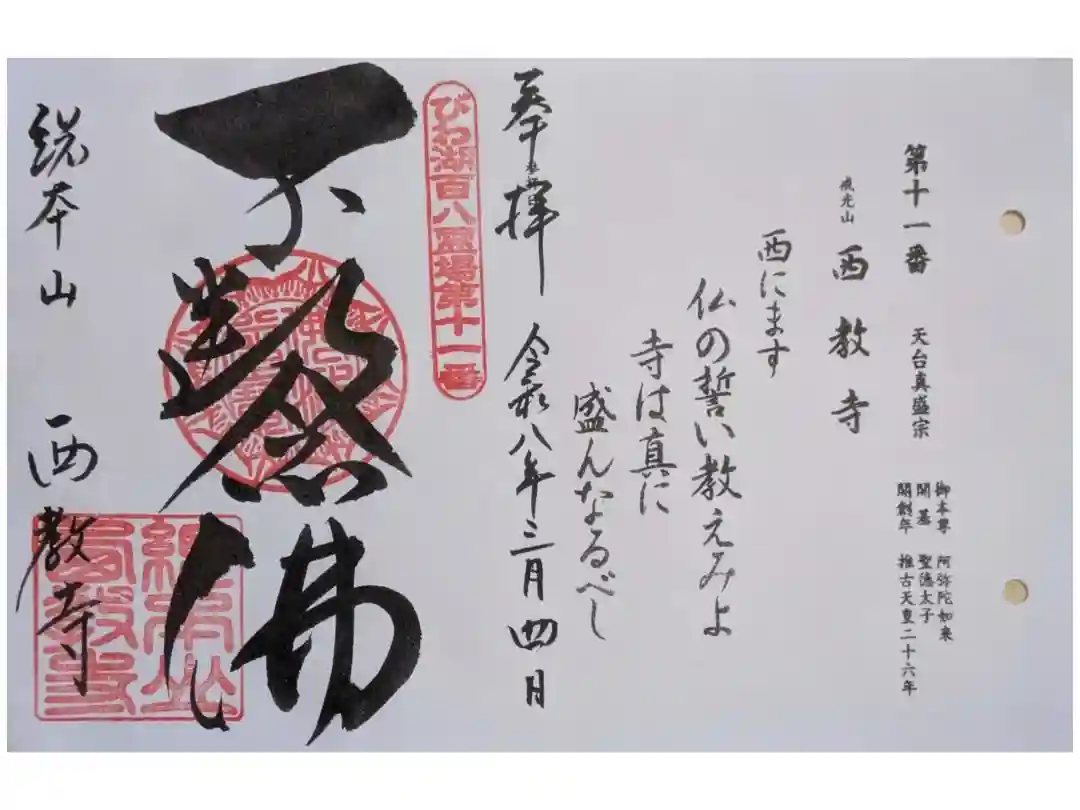 第十一番 天台真盛宗
御本尊 阿弥陀如来
開基 聖徳太子
開創年 推古天皇二十六年
戒光山 西教寺
西にます
仏の誓い教えみよ
寺は真に
盛んなるべし
奉拝 令和八年三月四日
びわ湖百八霊場第十一番
不断念佛
総本山 西教寺
總本山
西教寺